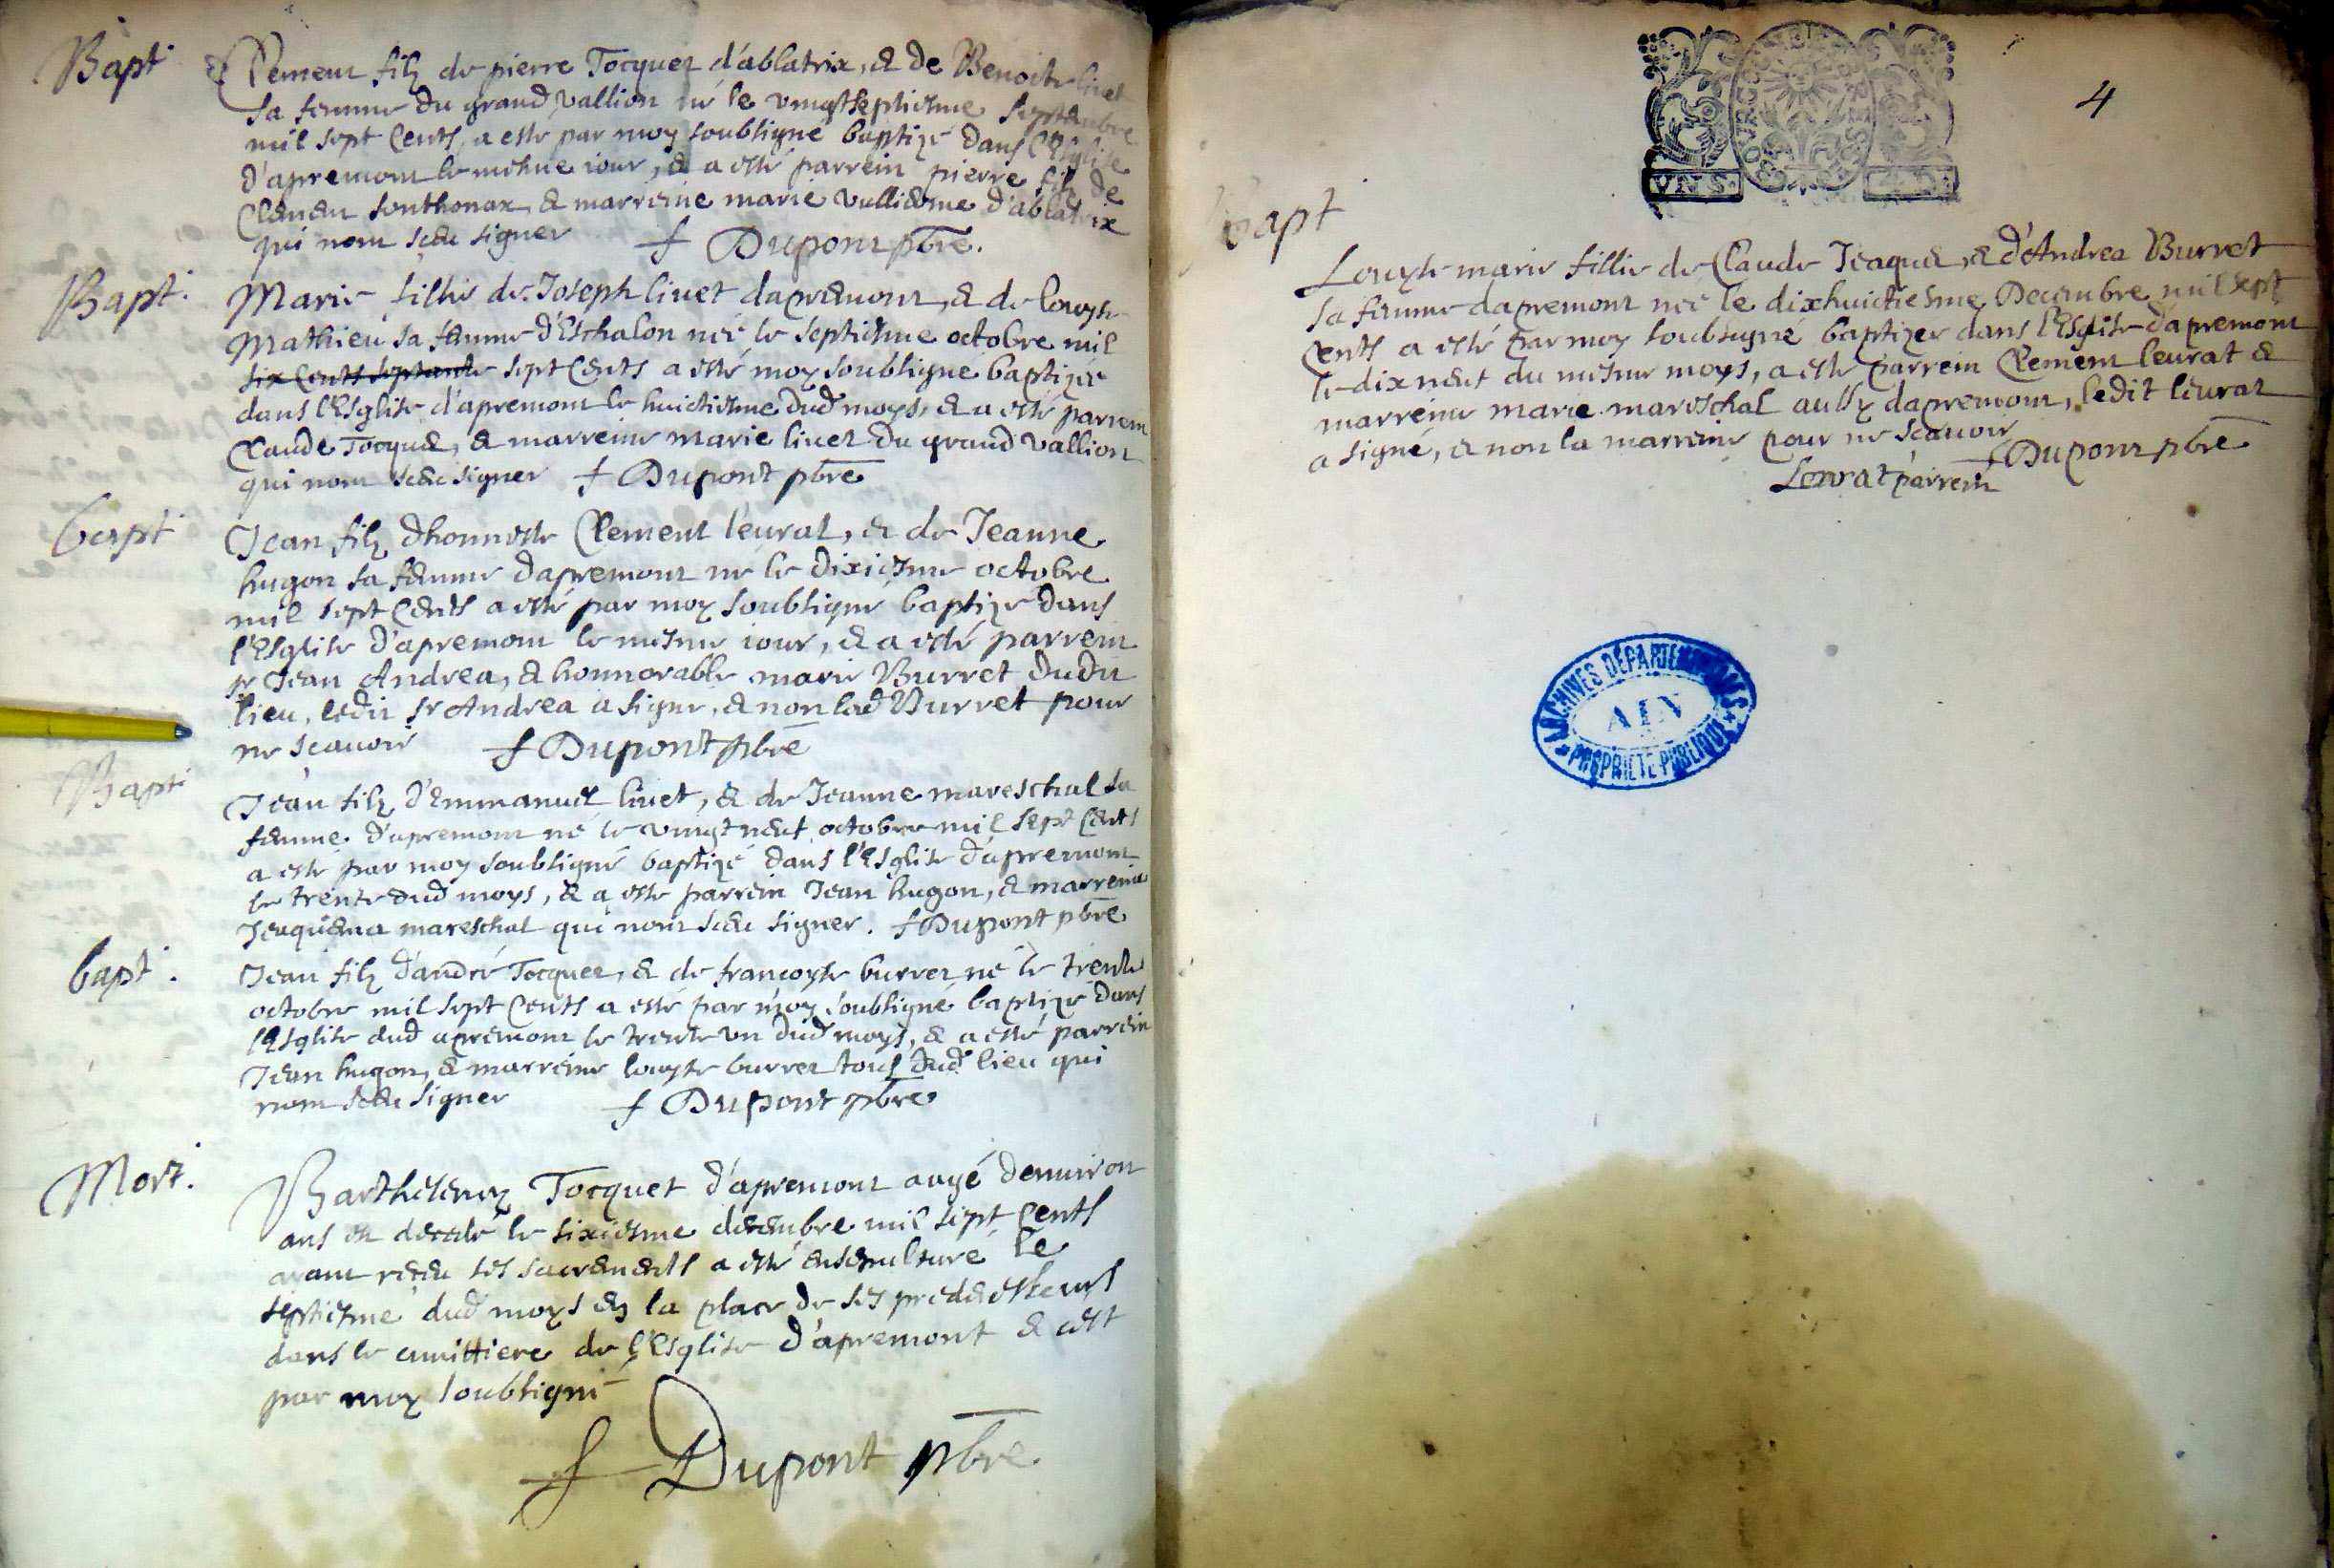 Bapt
Clement filz de pierre Tocquet d'ablatrix, & de Benoiste livet
sa femme du grand vallion né le vingtseptiesme septembre
mil sept cents, a esté par moy soubsigné baptizé dans l'Esglise
d'apremont le mesme iour, & a esté parrein pierre filz de
Clement sonthonax, & marreine marie vullierme d'ablatrix
qui nont sceu signer f Dupont pbre.
Bapt.
Marie fillie de Joseph livet dapremont, & de louyse
Mathieu sa femme d'Eschalon née le septiesme octobre mil
six cents septante sept cents a esté moy soubsigné baptizée
dans l'Esglise d'apremont le huictiesme dud moys, & a esté parrein
Claude Tocquet, & marreine marie livet du grand vallion
qui nont sceu signer f Dupont pbre
bapt
Jean filz dhonneste Clement leurat, & de Jeanne
hugon sa femme dapremont né le dixiesme octobre
mil sept cents a esté par moy soubsigné baptizé dans
l'Esglise d'apremont le mesme iour, & a esté parrein
sr Jean Andrea, & honnorable marie Burret dudit
lieu, ledit sr Andrea a signé, & non lad Burret pour
ne scavoir f Dupont pbre
Bapt
Jean filz d'Emmanuel livet, & de Jeanne mareschal sa
femme d'apremont né le vingt neuf octobre mil sept cents
a esté par moy soubsigné baptizé dans l'Esglise d'apremont
le trente dud moys, & a esté parrein Jean hugon, & marreine
Jaquema mareschal qui nont sceu signer. f Dupont pbre
bapt.
Jean filz d'andré Tocquet, & de francoyse burret né le trente
octobre mil sept cents a esté par moy soubsigné baptizé dans
l'Esglise dud apremont le trente un dud moys, & a esté parrein
Jean hugon, & marreine louyse burret tous dud lieu qui
nont sceu signer f Dupont pbre
Mort.
Barthelemy Tocquet d'apremont aagé denviron
ans est decedé le sixiesme decembre mil sept cents
ayant receu ses sacrements a esté ensepulturé le
septiesme dud moys en la place de ses predecesseurs
dans le cimittiere de l'Esglise d'apremont & cest
par moy soubsigné
f Dupont pbre
4
BOURG
BRESS
VNS.
Bapt
Louyse marie fillie de Claude Jcaquet, & d'Andrea Burret
sa femme dapremont née le dixhuictiesme Decembre mil sept
cents a esté par moy soubsigné baptizée dans l'Esglise dapremont
le dix neuf du mesme moys, a esté parrein Clement leurat &
marreine marie mareschal aussy dapremont, ledit leurat
a signé, & non la marreine pour ne scavoir
f Dupont pbre
Leurat parrein
ARCHIVES DÉPARTEMENTALES
AIN
PROPRIÉTÉ PUBLIQUE